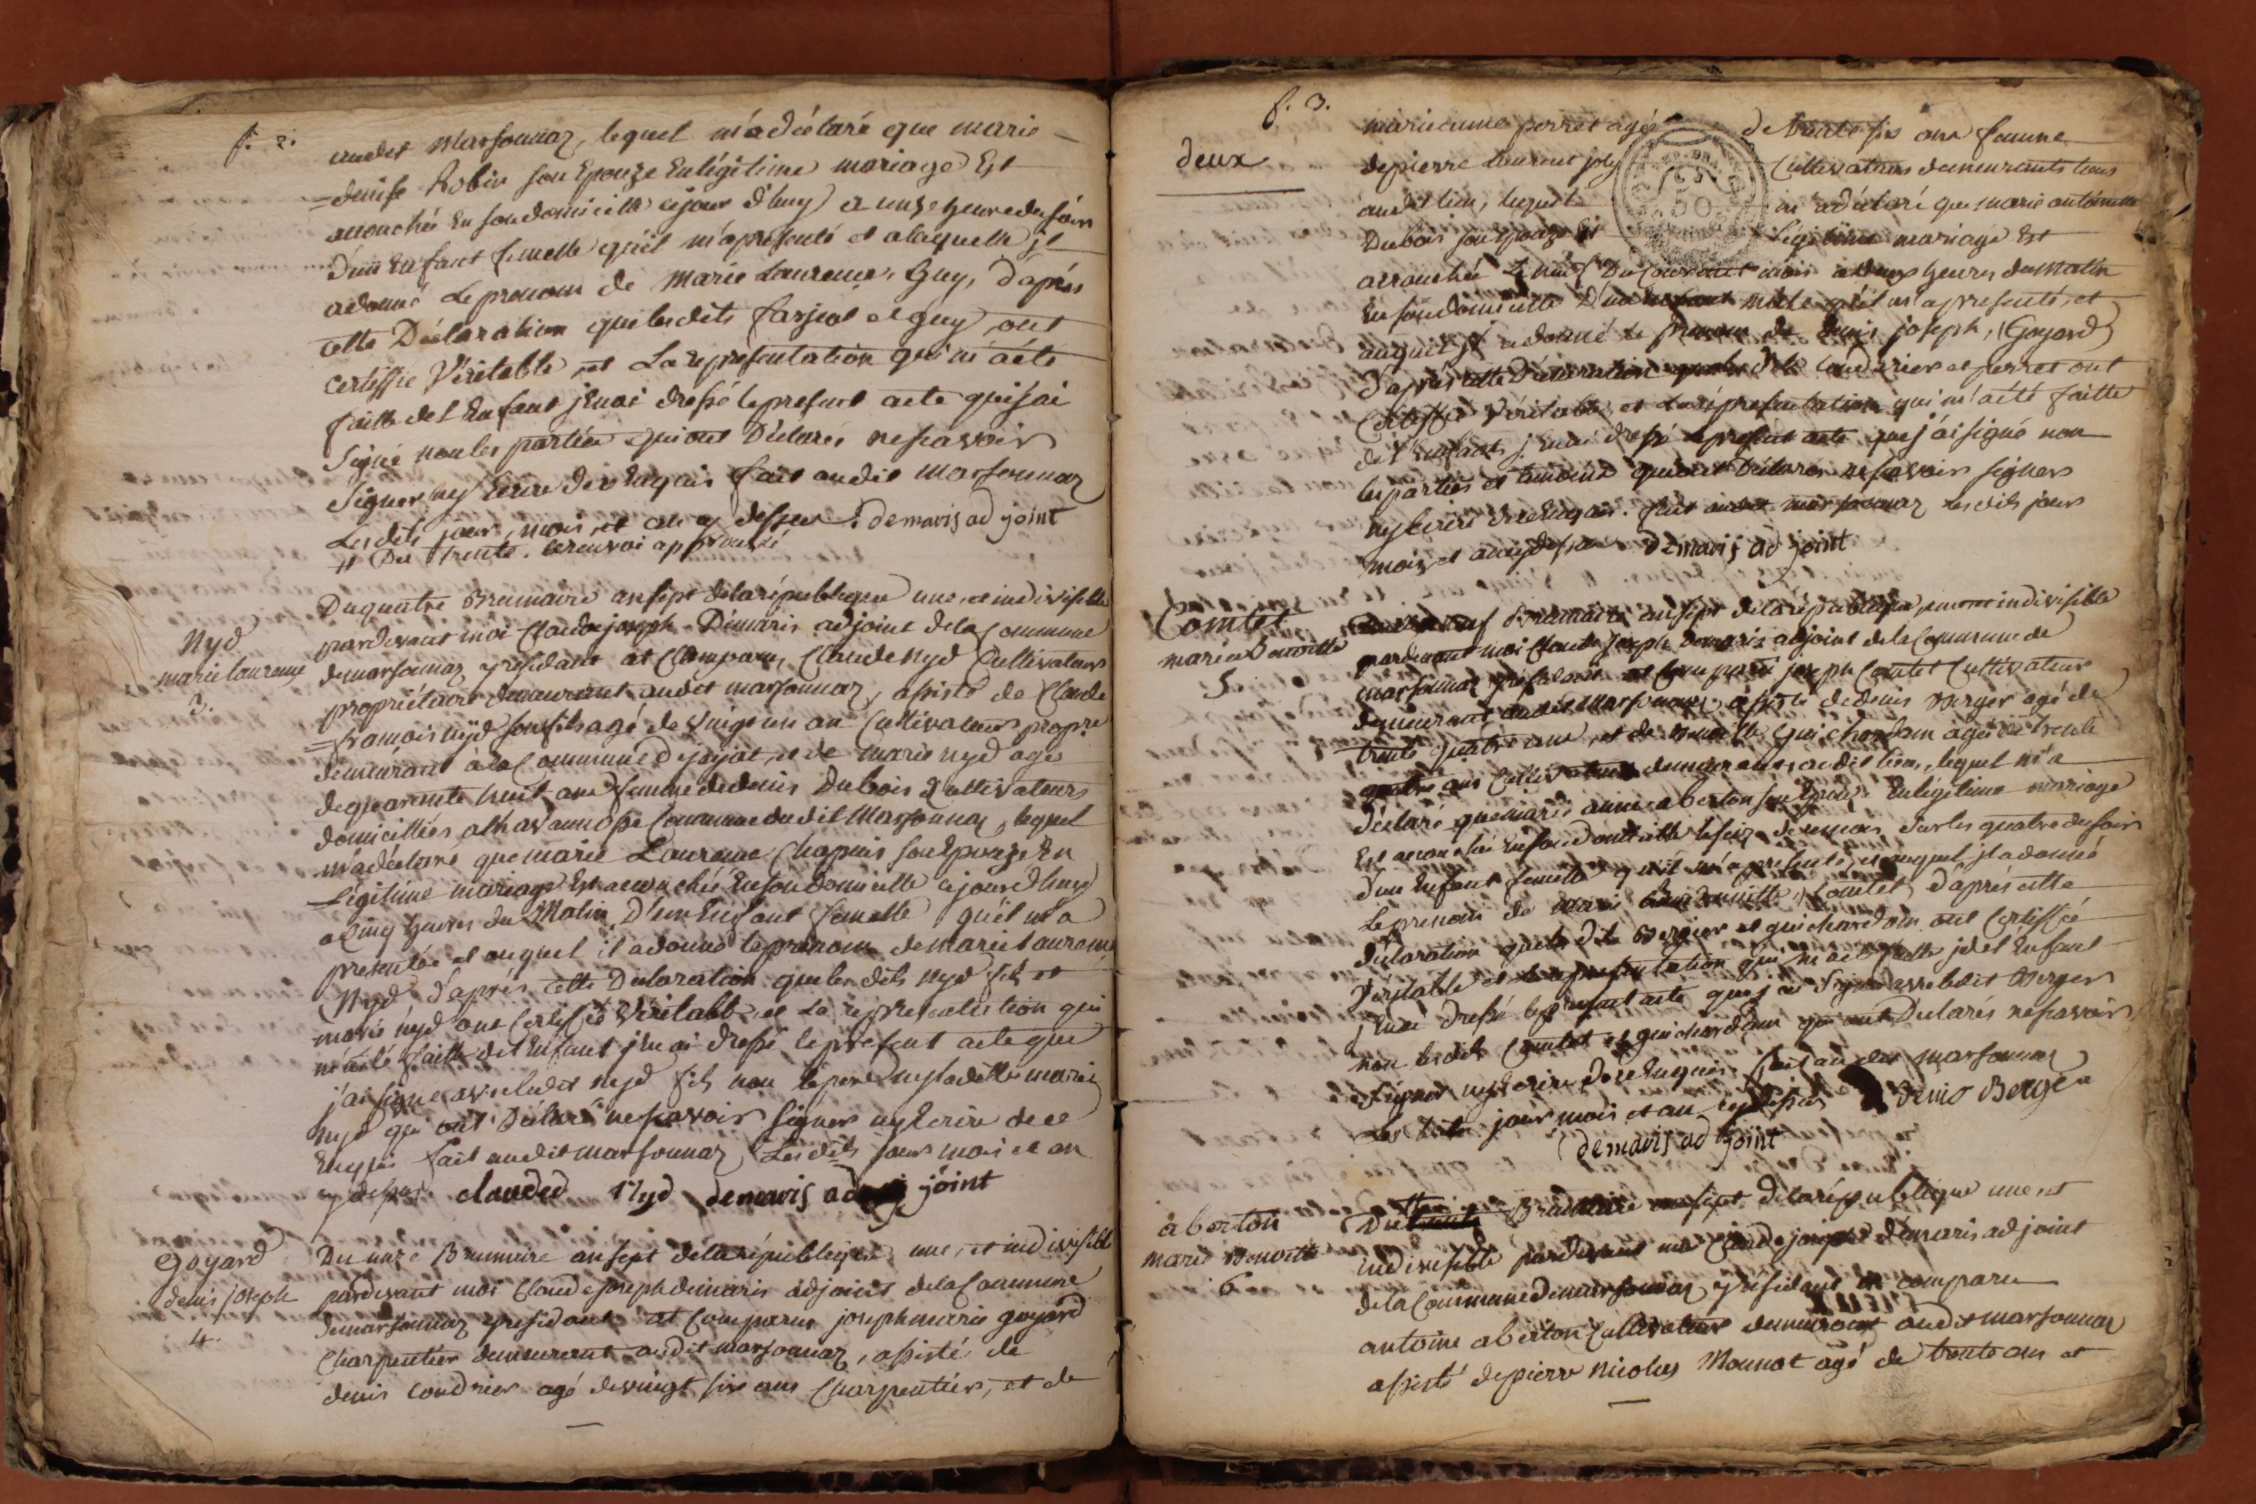 f. 2.
audit Marsonnaz, lequel m'a déclaré que marie
=denise Robin son Epouze En légitime mariage Est
accouchée En son domicille cejour d'huy a unze heure du soir
d'un Enfant femelle qu'il m'a présenté et a laquelle jl
adonné Le prenom de Marie Laurence, Guy, d'aprés
cette Déclaration que lesdits farjeot et guy ont
certiffié Véritable, et La representation qui m'a été
faitte del Enfant jEnai dressé le present acte quejai
Signé non les parties qui ont Déclarés nesçavoir
Signer ny Ecrire de ce Enquis fait audit Marsonnaz
Lesdits jour, mois, et an cy dessus. demaris ad joint
Du trente. le renvoi approuvé
Nyd
marie laurence
3.
Du quatre Brumaire an sept delarépublique une et indivisible
pardevant moi Claude joseph Demaris adjoint dela Commune
demarsonnaz y residant at Comparu, Claude Nyd Cultivateur
propriétaire demeurant audit marsonnaz, assisté de Claude
=francois nyd son fils agé de vingt un an Cultivateur propre
demeurant àla Commune d jayat, et de marie nyd age
dequarente huit ans femme dedenis Dubois Cultivateurs
domicilliés Commune dudit Marsonnaz, lequel
m'a déclaré que marie Laurence Chapuis son Epouze En
Légitime mariage Est accouchée En son domicille cejourd'huy
a Cinq heures du Matin, D'un Enfant femelle qu'il m'a
presentée et auquel il adonné leprenom demarie Laurence
Nyd d'après cette Declaration que lesdits nyd fils et
marie nyd ont Certiffié Véritable, et La representation qui
m'aété faitte del Enfant jEnai dressé le present acte que
j'ai signé avec ledit nyd fils non le pere ny ladittte marie
nyd qui ont Déclaré nesçavoir signer ny Ecrire de ce
Enquis fait audit marsonnaz Lesdits jour mois et an
cy dessus. claude Nyd demaris ad joint
Goyard
denis joseph
4.
Du unze Brumaire an sept delarépublique une, et indivisible
pardevant moi Claude joseph demaris adjoint dela Commune
demarsonnaz y residant at Comparu joseph marie goyard
Charpentier demeurant audit marsonnaz, assisté de
denis Coudrier agé devingt six ans Charpentier, et de
f. 3.
deux
marieanne perret agée de trente six ans femme
depierre Laurent joly Cultivateurs demeurants tous
audit lieu, lequel m'a déclaré que marie antoinette
Dubois son Epouze En Légitime mariage Est
accouchée Le neuf Du courant mois a deux heures du Matin
En son domicille D'un Enfant Mâle qu'il m'a presenté, et
auquel jl a donné Le prenom de denis joseph, Goyard
D'après cette Déclaration que lesdits Coudrier et perret ont
Certiffié Véritable, et La representation qui m'a été faitte
de l'Enfant jEnai dressé le present acte que j'ai signé non
les parties et temoins qui ont Déclarés nesçavoir signer
ny Ecrire de ce Enquis. fait audit marsonnaz Lesdits jour
mois et an cy dessus demaris ad joint
Comtet
marie Benoitte
5
neuf Brumaire an sept delarépublique une et indivisible
pardevant moi Claude joseph demaris adjoint dela Commune de
marsonnaz y residant at Comparu joseph Comtet Cultivateur
demeurant audit Marsonnaz, assisté dedenis Berger agé de
trente quatre ans, et de Benoitte Guichardan agée de trente
quatre ans Cultivateurs demeurants audit lieu, lequel m'a
déclaré que marie anne aberton son Epouze En légitime mariage
Est accouchée En son domicille le seize de ce mois Sur les quatre du soir
d'un Enfant femelle qu'il m'a presenté, et auquel jl adonné
Le prenom de Marie Benoitte, Comtet, d'aprés cette
déclaration que lesdits Berger et guichardan ont Certiffié
Véritable et la representation qui m'aété faitte jdel Enfant
jEnai dressé le present acte que j'ai Signé avec ledit Berger
non lesdits Comtet et guichardan qui ont Déclarés nesçavoir
Signer ny Ecrire de ce Enquis. fait audit Marsonnaz
Les dits jour mois et an cy dessus Denis Berger
demaris ad joint
aberton
marie Benoitte
6
Du Brumaire an sept delarépublique une et
indivisible pardevant moi Claude joseph demaris ad joint
dela Commune demarsonnaz y residant at comparu
antoine aberton Cultivateur demeurant audit marsonnaz
assisté depierre nicolas Monnot agé de trente ans et